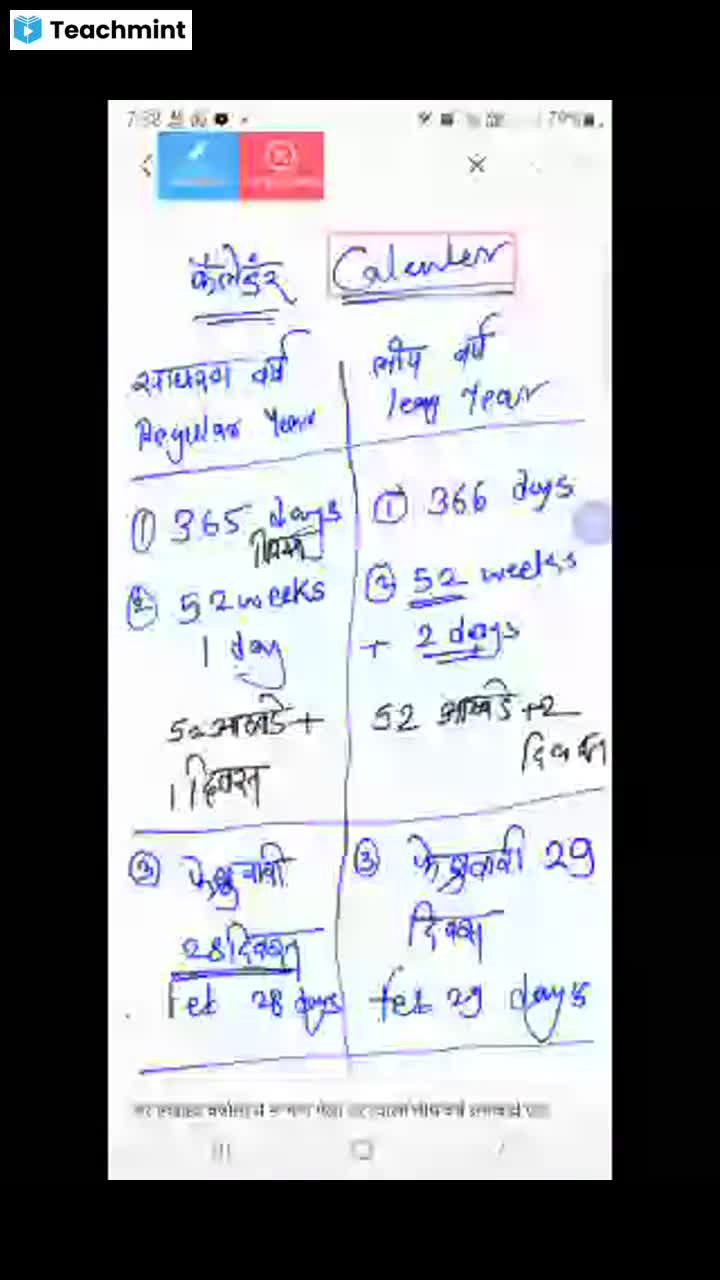 Teachmint
कॅलेंडर Calender
साधारण वर्ष
Regular Year
लीप वर्ष
leap Year
① 365 days
दिवस
② 52 weeks
1 day
52 आठवडे +
1 दिवस
① 366 days
② 52 weeks
+ 2 days
52 आठवडे +2
दिवस
③ फेब्रुवारी
28 दिवस
Feb 28 days
③ फेब्रुवारी 29
दिवस
feb 29 days